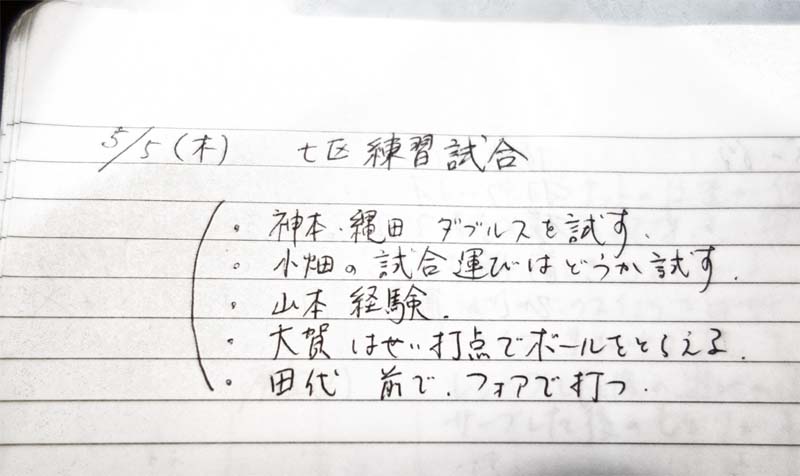 5/5(木) 七区練習試合
・神本・縄田 ダブルスを試す.
・小畑の試合運びはどうか試す.
・山本 経験.
・大賀 はせい打点でボールをとらえる.
・田代 前で.フォアで打つ.